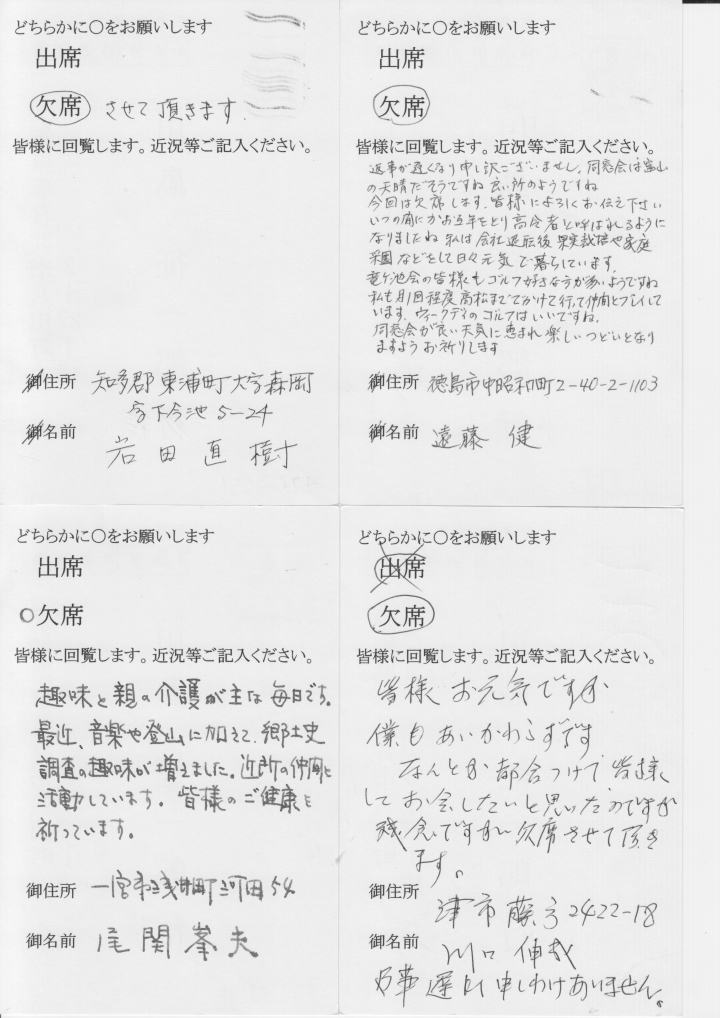 どちらかに〇をお願いします
出席
欠席 させて頂きます.
皆様に回覧します。近況等ご記入ください。
御住所 知多郡東浦町大字森岡
字下今池 5-24
御名前
岩田直樹
どちらかに〇をお願いします
出席
欠席
皆様に回覧します。近況等ご記入ください。
返事が遅くなり申し訳ございません。同窓会は
の天晴だそうですね 良い所のようですね
今回は欠席します。皆様によろしくお伝え下さい
いつの間にかお互年をとり高令者と呼ばれるように
なりましたね 私は会社退転後 果実栽培や家庭
菜園などをして日々元気で暮らしています.
竜ヶ池会の皆様もゴルフ好きな方が多いようですね
私も月1回程度高松まででかけて行って仲間とプレイして
います. ウィークディのゴルフはいいですね.
同窓会が良い天気に恵まれ楽しいつどいとなり
ますようお祈りします
御住所 徳島市中昭和町2-40-2-1103
御名前 遠藤 健
どちらかに〇をお願いします
出席
〇欠席
皆様に回覧します。近況等ご記入ください。
趣味と親の介護が主な毎日です。
最近、音楽や登山に加えて、郷土史
調査の趣味が増えました。近所の仲間と
活動しています。皆様のご健康を
祈っています。
御住所 一宮市浅井町河田54
御名前 尾関峯夫
どちらかに〇をお願いします
出席
欠席
皆様に回覧します。近況等ご記入ください。
皆様お元気ですか
僕もあいかわらずです
なんとか都合つけて皆様
してお会したいと思いたのですが
残念ですが欠席させて頂き
ます。
御住所
津市藤方2422-18
御名前 川口伸哉
申しわけありません。